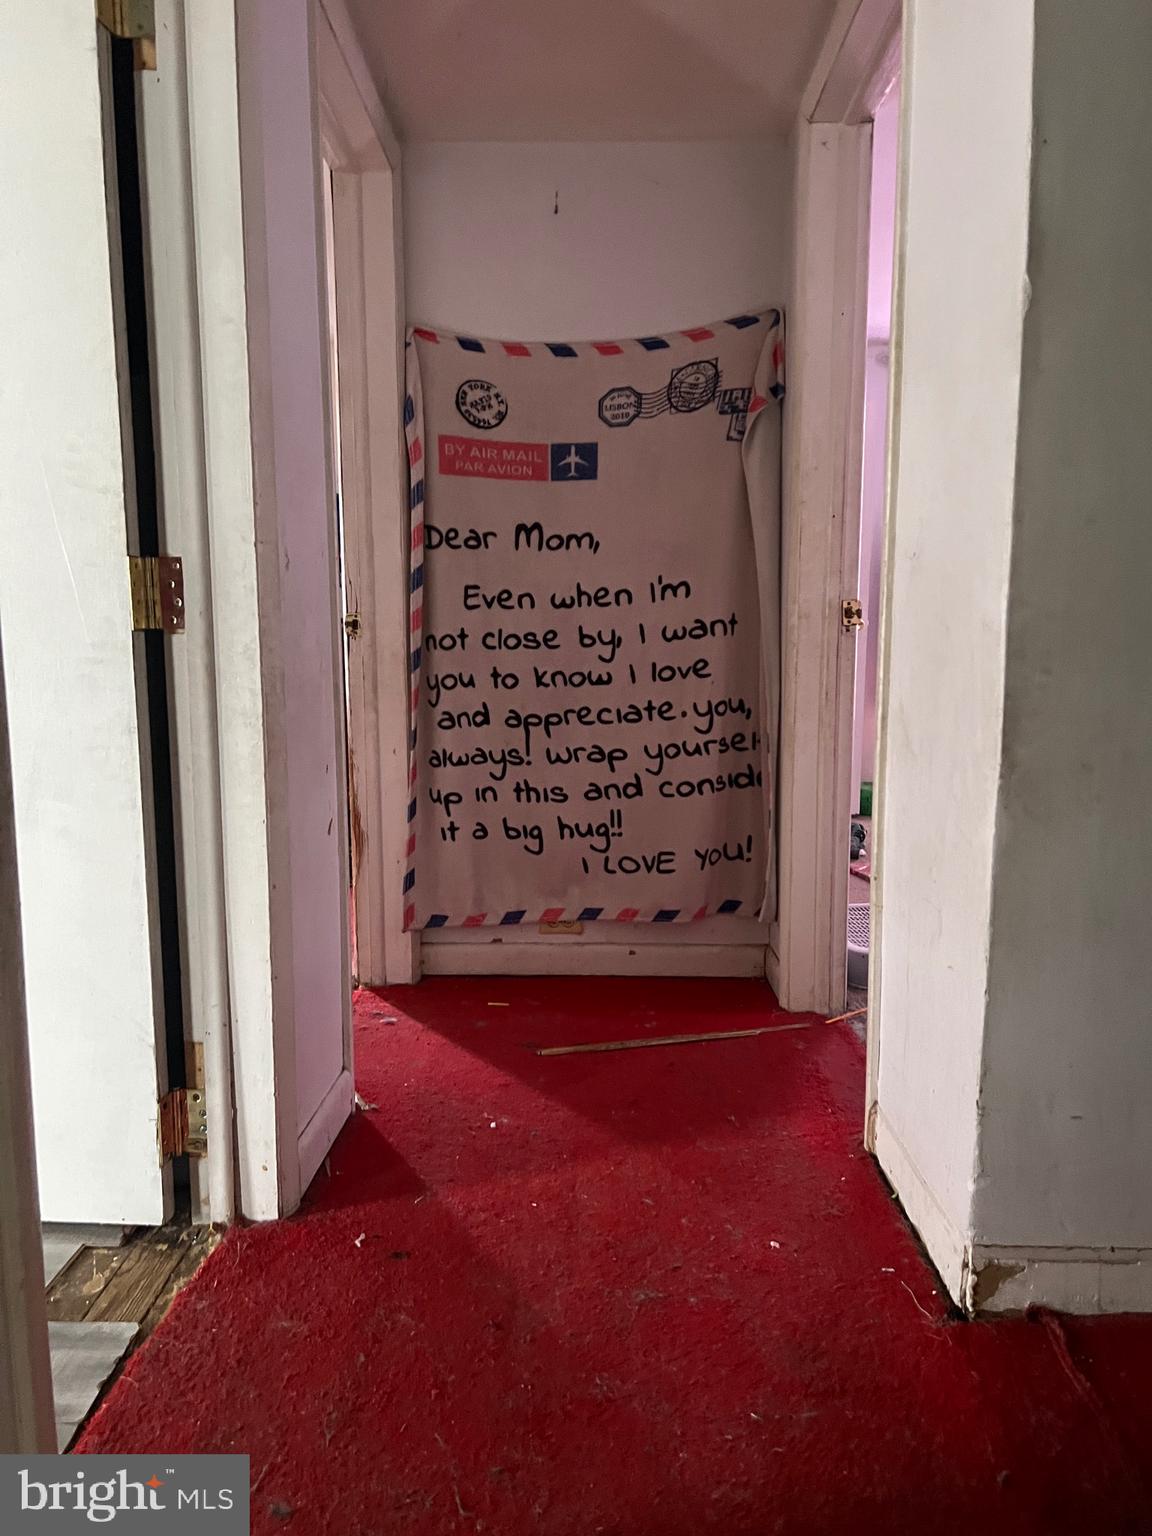 NEW YORK N.Y.
LISBON
2019
BY AIR MAIL
PAR AVION
Dear Mom,
Even when I'm
not close by, I want
you to know I love
and appreciate. you,
always! wrap yourself
up in this and conside
it a big hug!!
I LOVE YOU!
bright™ MLS